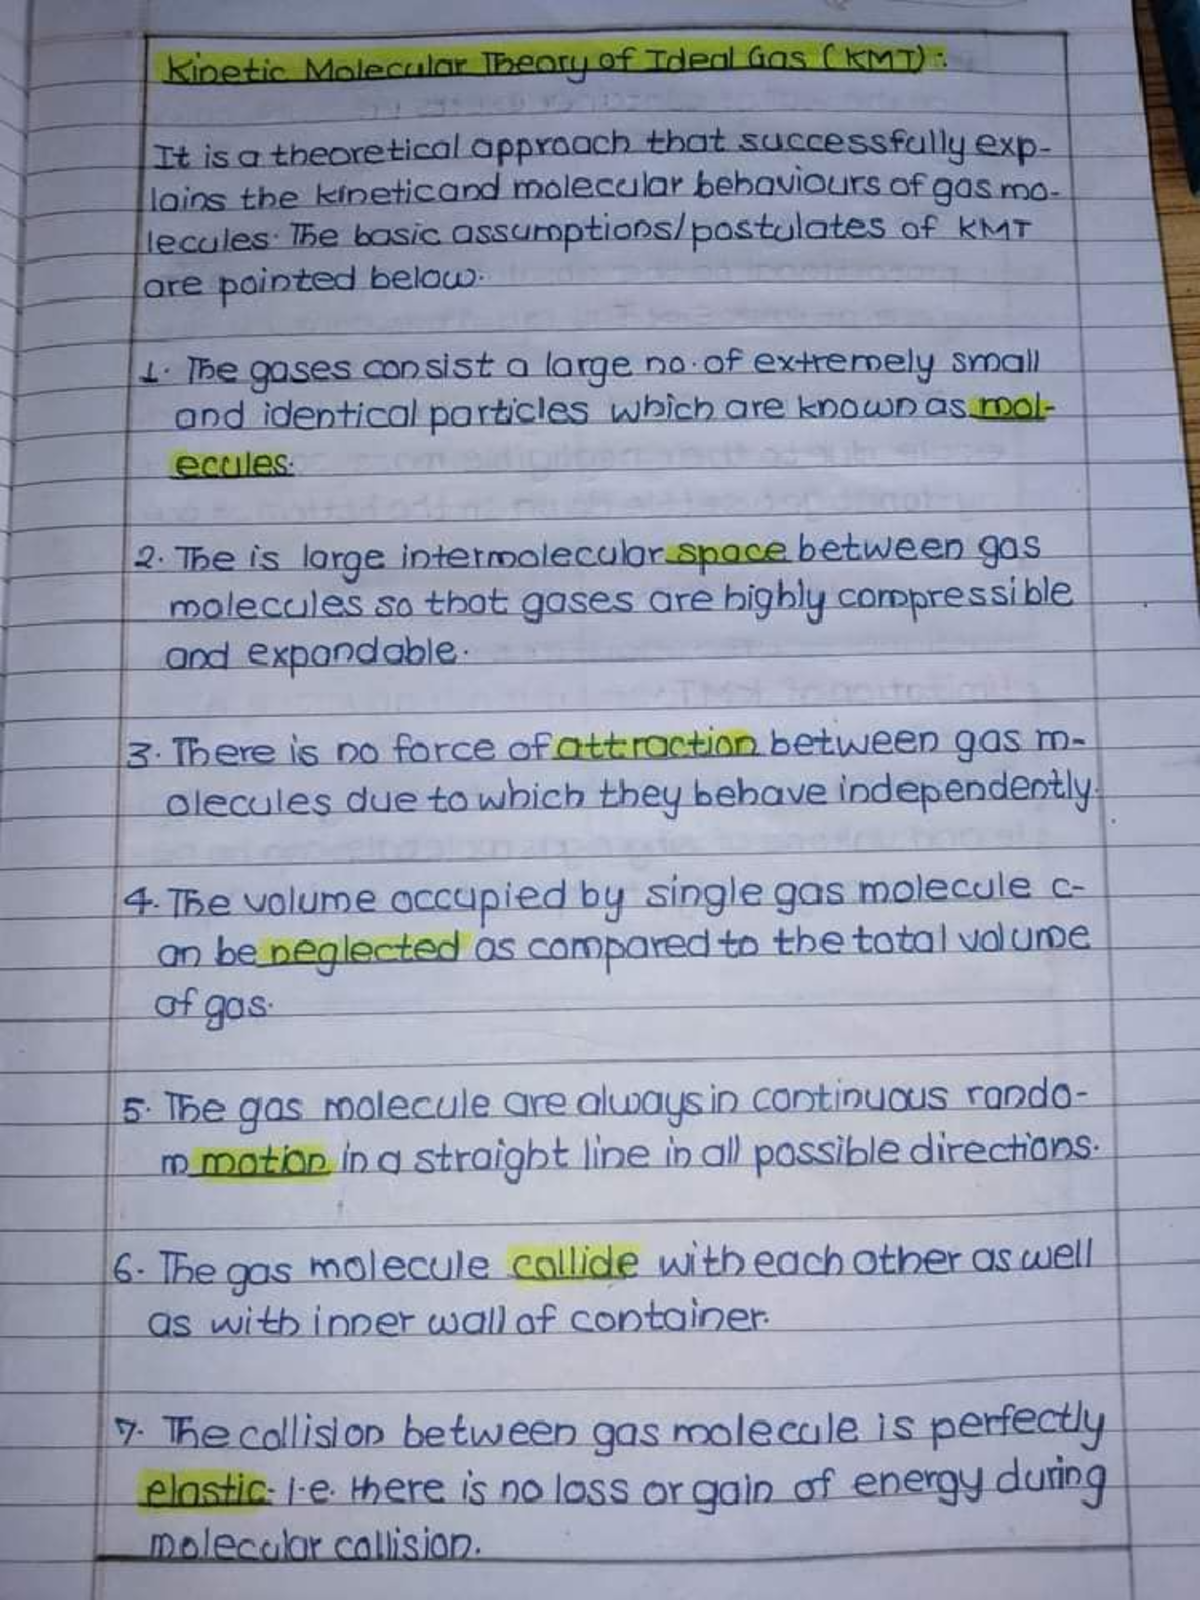 Kinetic Molecular Theory of Ideal Gas (KMT):
It is a theoretical approach that successfully exp-
lains the kinetic and molecular behaviours of gas mo-
lecules. The basic assumptions/postulates of KMT
are pointed below.
1. The gases consist a large no. of extremely small
and identical particles which are known as mol-
ecules.
2. The is large intermolecular space between gas
molecules so that gases are highly compressible
and expandable.
3. There is no force of attraction between gas m-
olecules due to which they behave independently.
4. The volume occupied by single gas molecule c-
an be neglected as compared to the total volume
of gas.
5. The gas molecule are always in continuous rando-
m motion in a straight line in all possible directions.
6. The gas molecule collide with each other as well
as with inner wall of container.
7. The collision between gas molecule is perfectly
elastic. i.e. there is no loss or gain of energy during
molecular collision.